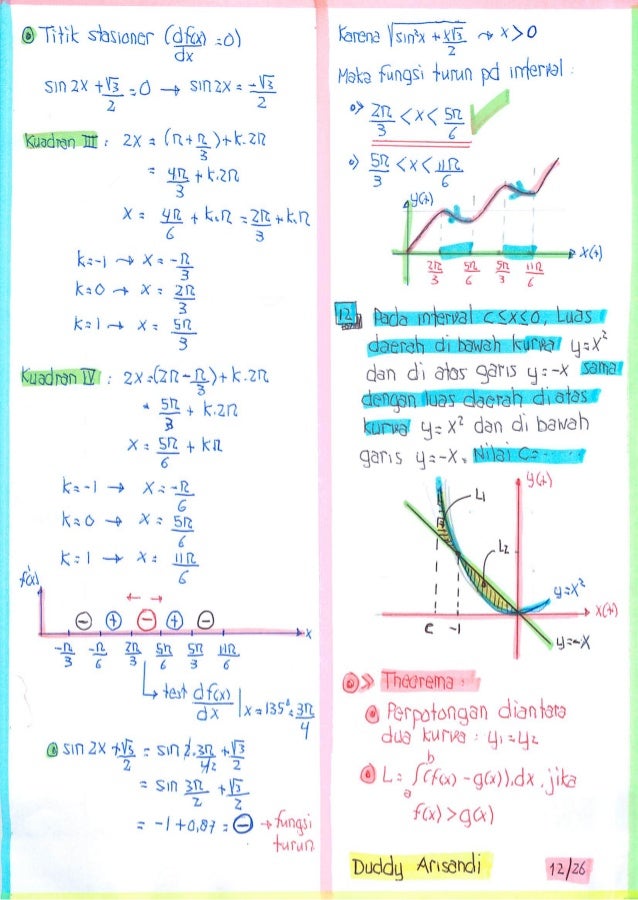 Titik stasioner (df(x)/dx = 0)
sin 2x + √3/2 = 0 → sin 2x = -√3/2
Kuadran III : 2x = (π+π/3)+k.2π
= 4π/3 + k.2π
x = 4π/6 + k.π = 2π/3 + k.π
k=-1 → x = -π/3
k=0 → x = 2π/3
k=1 → x = 5π/3
Kuadran IV : 2x=(2π-π/3)+k.2π
= 5π/3 + k.2π
x = 5π/6 + kπ
k=-1 → x = -π/6
k=0 → x = 5π/6
k=1 → x = 11π/6
f'(x)
- + - + -
x
-π/3 -π/6 2π/3 5π/6 5π/3 11π/6
test df(x)/dx | x=135°=3π/4
sin 2x + √3/2 = sin 2.3π/4 2 + √3/2
= sin 3π/2 + √3/2
= -1+0,87 = - → fungsi
turun
Karena √sin²x + x√3/2 → x>0
Maka fungsi turun pd interval :
2π/3 < x < 5π/6
5π/3 < x < 11π/6
y(+)
x(+)
2π/3 5π/6 5π/3 11π/6
12 Pada interval c≤x≤0, Luas
daerah di bawah kurva y=x²
dan di atas garis y=-x sama
dengan luas daerah di atas
kurva y=x² dan di bawah
garis y=-x. Nilai C=....
y(+)
L1
L2
y=x²
x(+)
c -1
y=-x
>> Theorema :
Perpotongan diantara
dua kurva : y₁=y₂
L = ₐ∫ᵇ(f(x) - g(x)).dx, jika
f(x)>g(x)
Duddy Arisandi 12/26